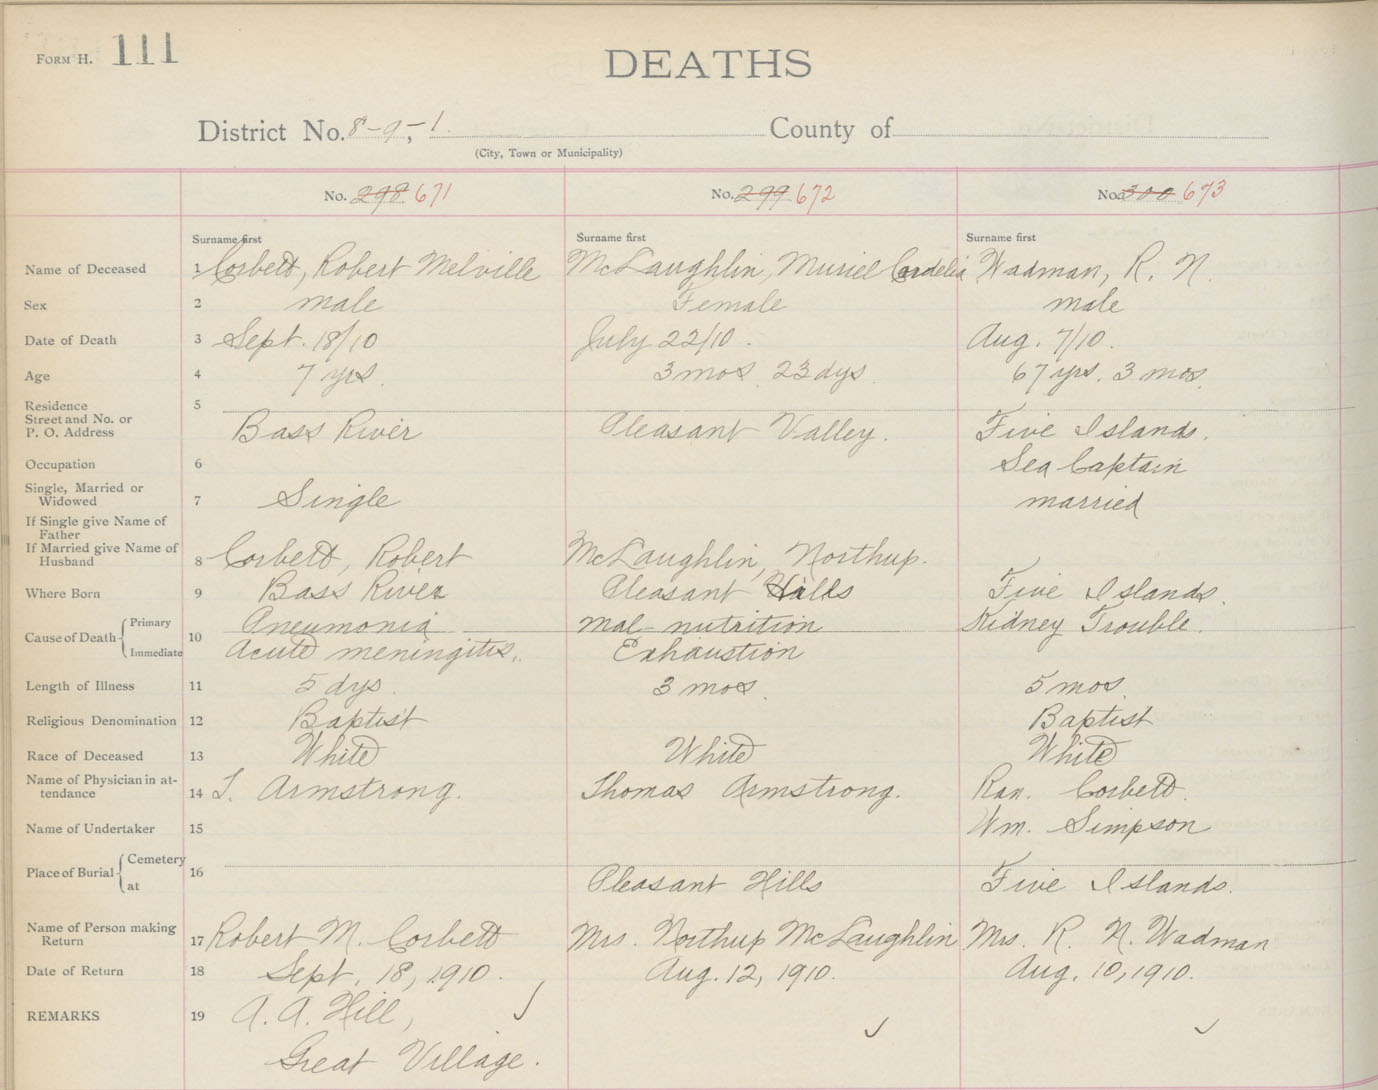 FORM H. 111
DEATHS
District No. 8-9-1. County of
(City, Town or Municipality)
No. 298 671 No. 299 672 No. 300 673
Surname first Surname first Surname first
Name of Deceased 1 Corbett, Robert Melville McLaughlin, Muriel Cordelia Wadman, R. N.
Sex 2 male Female male
Date of Death 3 Sept. 18/10 July 22/10. Aug. 7/10.
Age 4 7 yrs. 3 mos. 23 dys. 67 yrs. 3 mos.
Residence 5
Street and No. or
P. O. Address Bass River Pleasant Valley. Five Islands.
Occupation 6 Sea Captain
Single, Married or
Widowed 7 Single married
If Single give Name of
Father
If Married give Name of
Husband 8 Corbett, Robert McLaughlin, Northup.
Where Born 9 Bass River Pleasant Hills Five Islands.
Cause of Death Primary 10 Pneumonia mal-nutrition Kidney Trouble.
Immediate Acute meningitis. Exhaustion
Length of Illness 11 5 dys. 3 mos. 5 mos.
Religious Denomination 12 Baptist Baptist
Race of Deceased 13 White White White
Name of Physician in at-
tendance 14 T. Armstrong. Thomas Armstrong. Ran. Corbett.
Name of Undertaker 15 Wm. Simpson
Place of Burial Cemetery 16
at Pleasant Hills Five Islands.
Name of Person making
Return 17 Robert M. Corbett Mrs. Northup McLaughlin Mrs. R. N. Wadman
Date of Return 18 Sept. 18, 1910. Aug. 12, 1910. Aug. 10, 1910.
REMARKS 19 A. A. Hill,
Great Village.